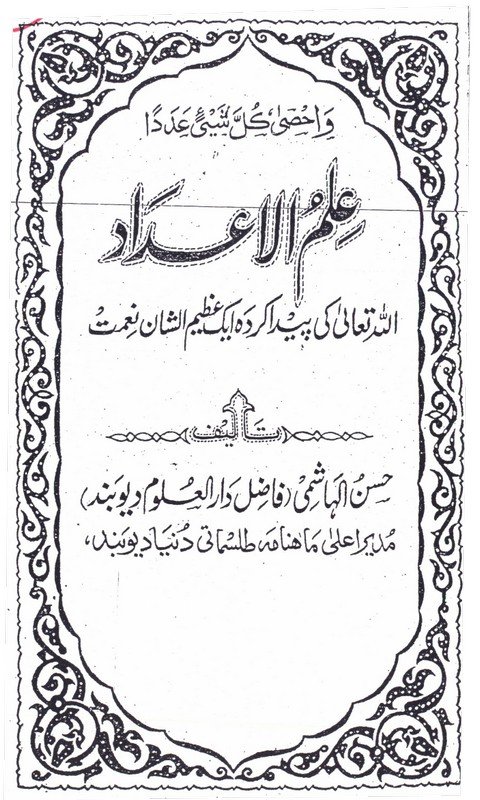 وَاحْصٰی کُلَّ شَیْئٍ عَدَدًا
عِلمُ الاعداد
اللہ تعالیٰ کی پیدا کردہ ایک عظیم الشان نعمت
تالیف
حسن الہاشمی (فاضل دارالعلوم دیوبند)
مدیر اعلیٰ ماھنامہ طلسماتی دُنیا دیوبند،